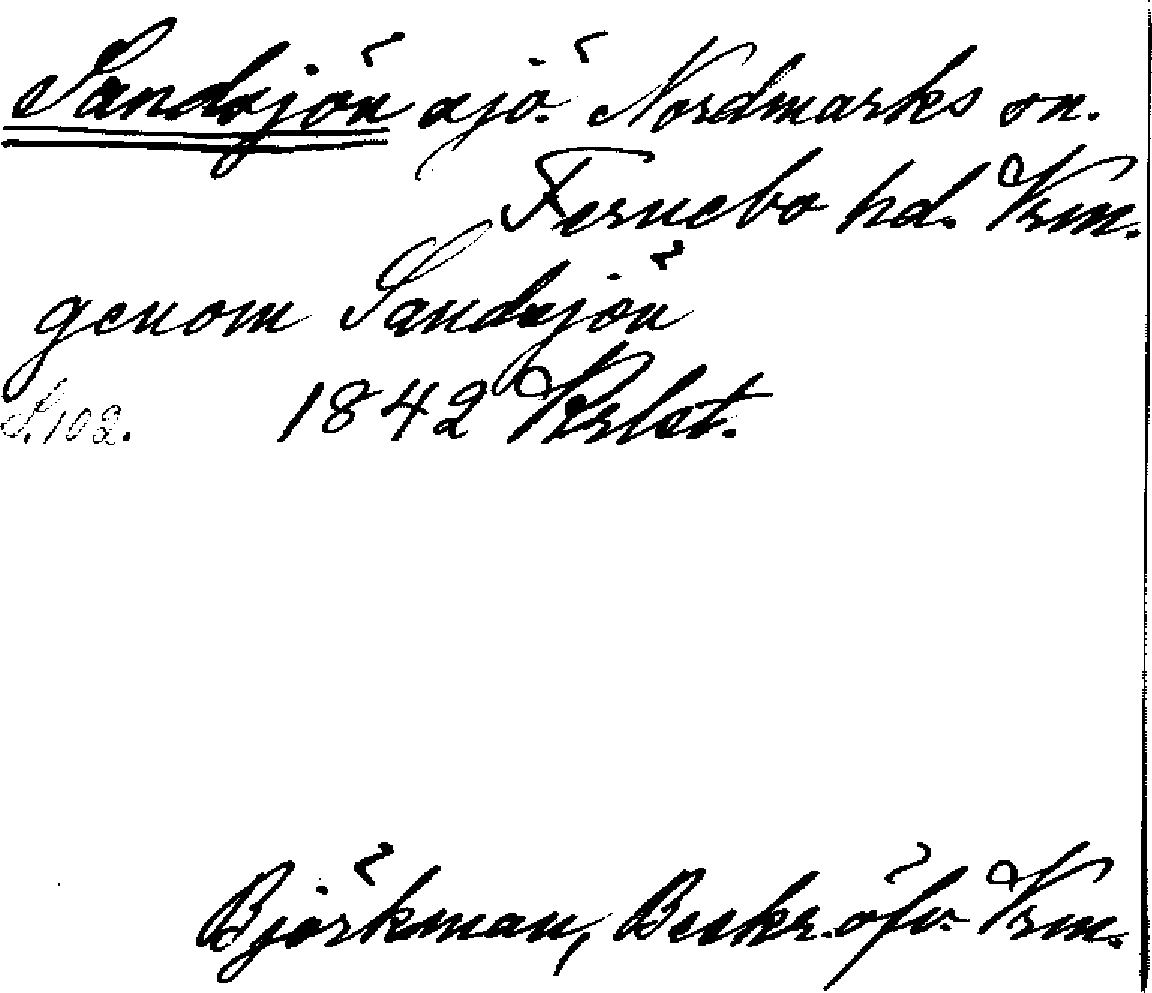 Sandsjön sjö. Nordmarks sn.
Fernebo hd. Vrm.
genom Sandsjön
S. 102. 1842
Björkman, Beskr. öfv. Vrm.